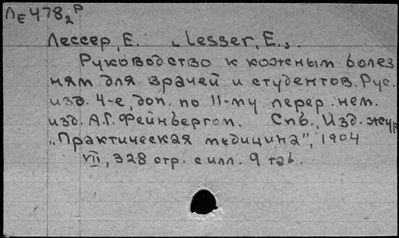 ЛЕ478₂ᴾ
Лессер, Е. „Lesser, E.„
Руководство к кожным болез
ням для врачей и студентов. Рус.
изд. 4-е, доп. по 11-му перер. нем.
изд. А.Г. Фейнбергом. Спб., Изд. жур
„Практическая медицина", 1904
VII, 328 стр. с илл. 9 таб.